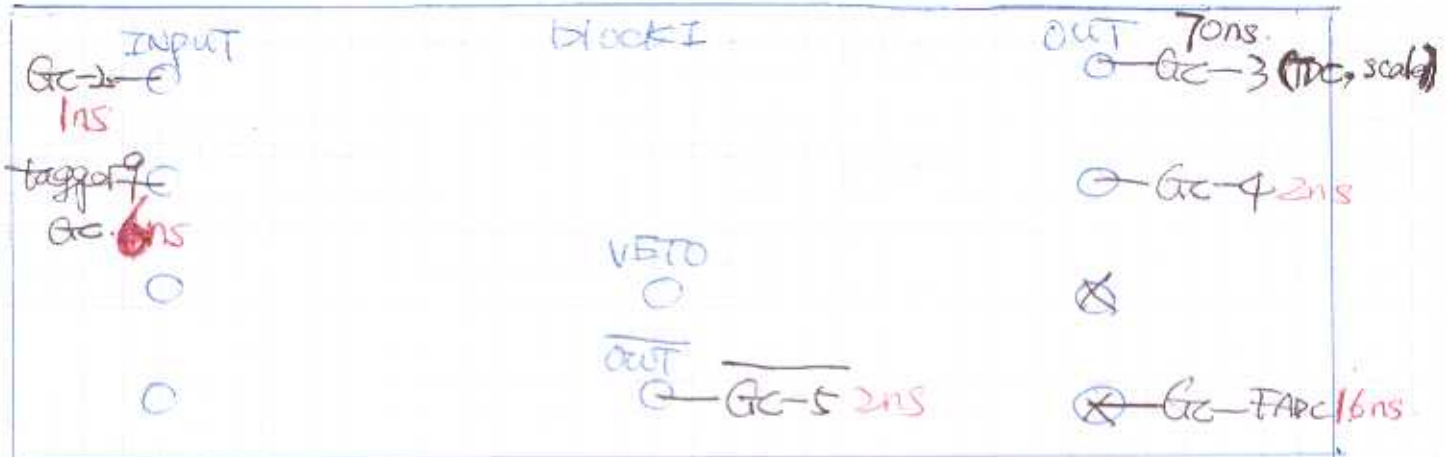 INPUT blockI OUT 70ns.
Gc-2 Gc-3 (TDC, scaler)
1ns
tagger9 Gc-4 2ns
Gc. 6ns
VETO
OUT Gc-5 2ns Gc-FADC 16ns